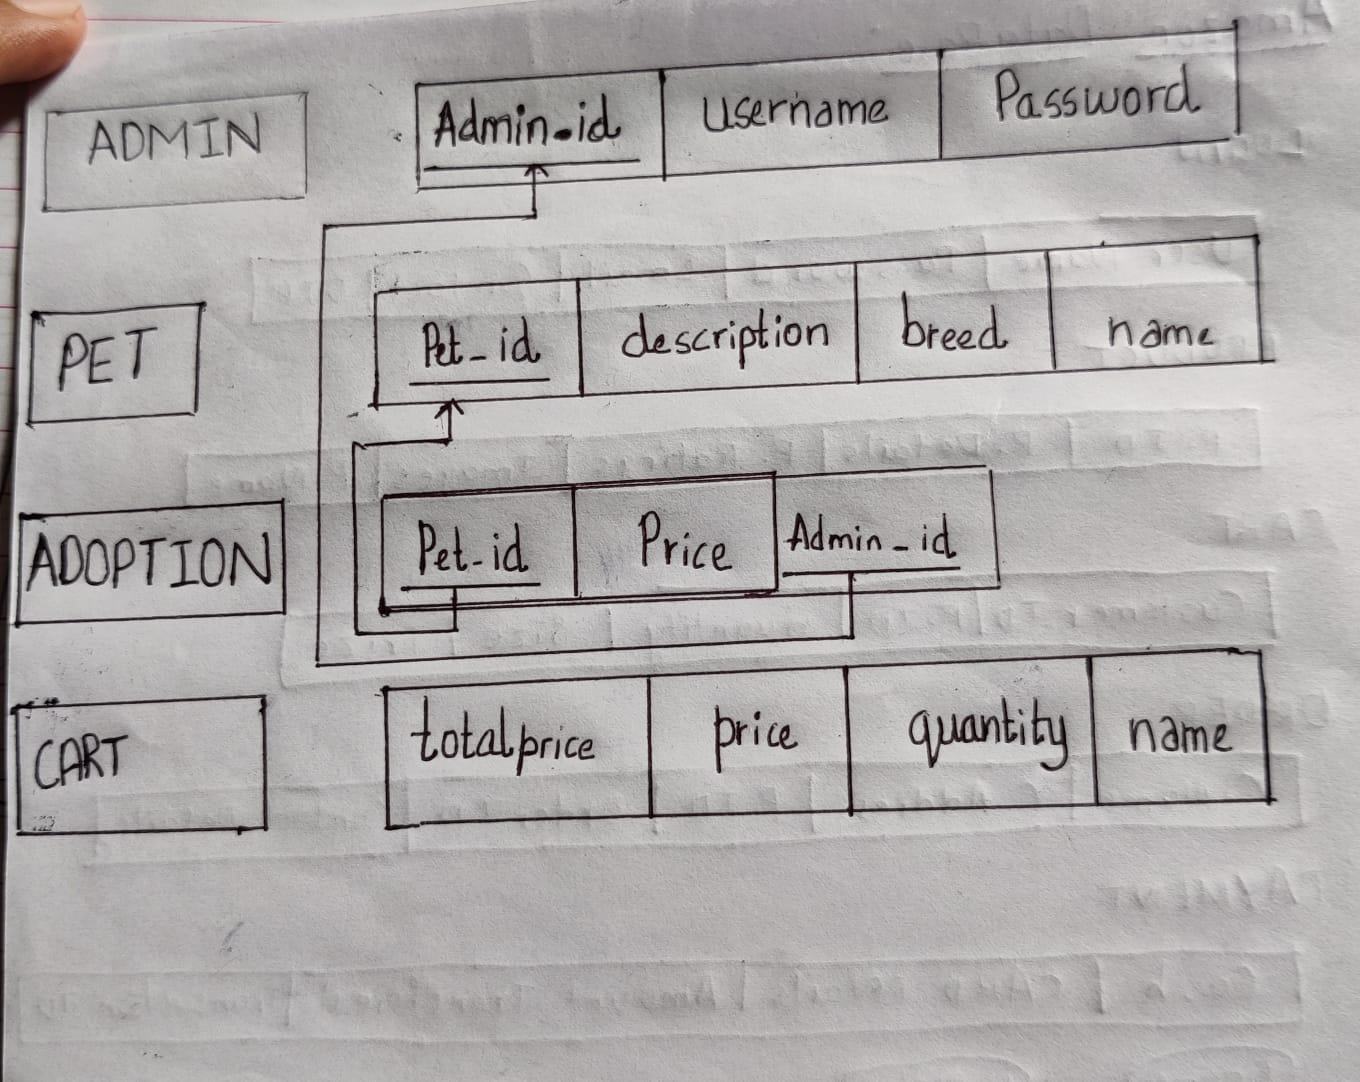 ADMIN Admin-id username Password
PET Pet-id description breed name
ADOPTION Pet-id Price Admin-id
CART totalprice price quantity name